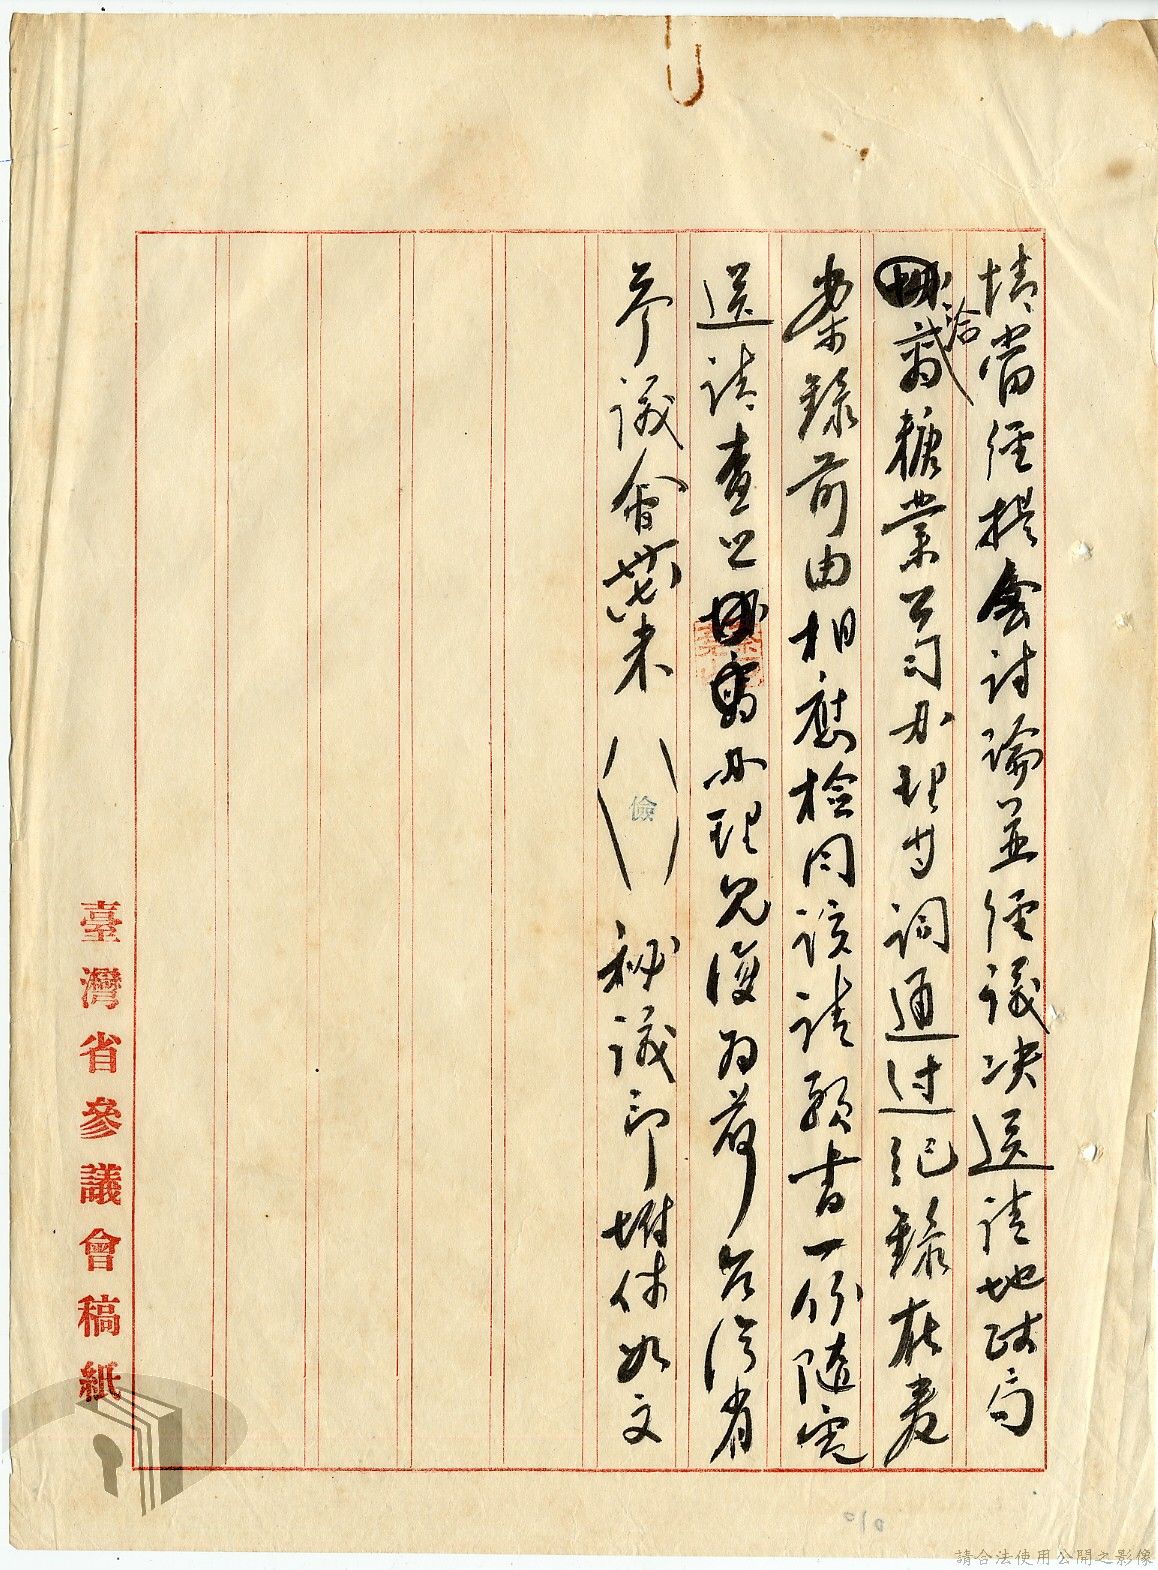 情當經提會討論並經議決送請地政局
洽商糖業公司辦理等詞通过紀錄在卷
案錄前由相應檢同該請願書一份隨電
送請查照辦理見復為荷台灣省
參議會 未(儉)秘議印附件如文
臺灣省參議會稿紙
請合法使用公開之影像